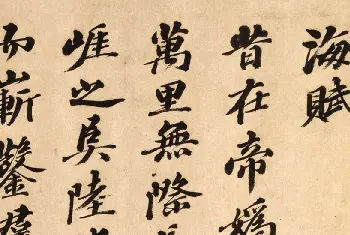 海賦
昔在帝媯
萬里無際
崕之阜陸
而嶄鑿羣